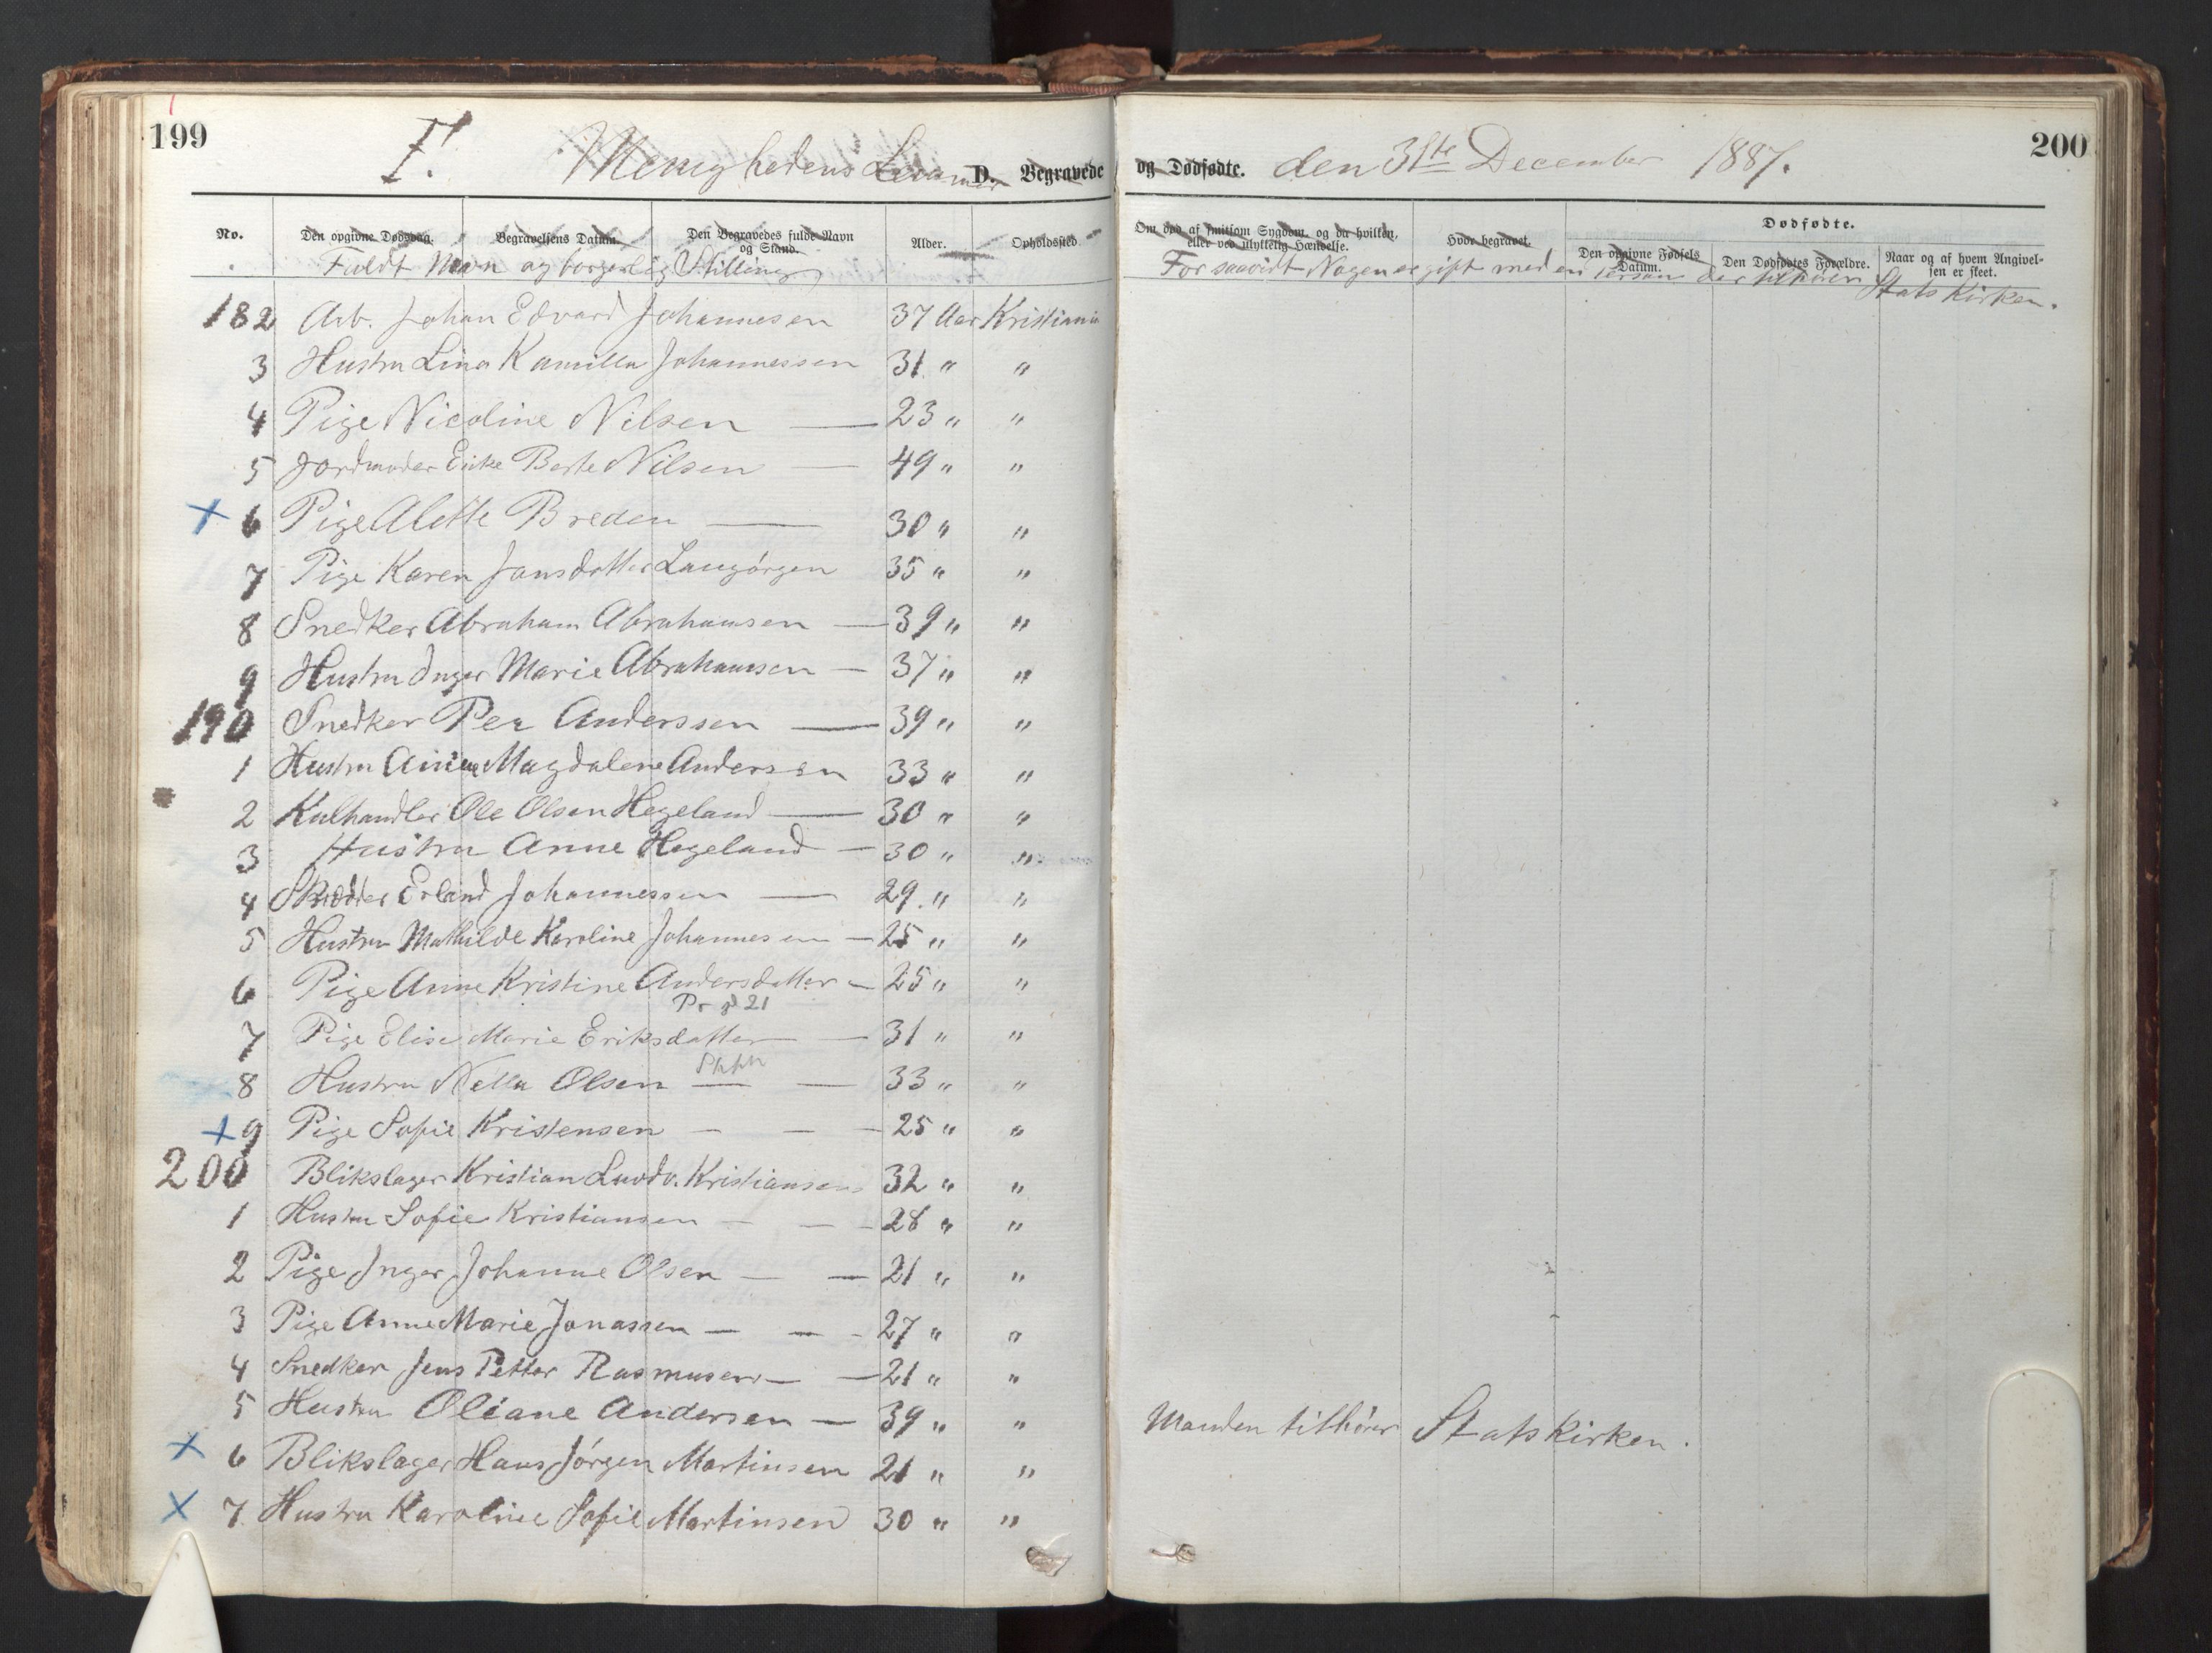 199
F. Menighedens D. Begravede
No.
Den opgivne Dødsdag.
Begravelsens Datum.
Den Begravedes fulde Navn og Stand.
Alder.
Opholdssted.
Fuldt Navn og borgerlig Stilling
182 Arb. Johan Edvard Johannesen 37 Aar Kristiania
3 Hustru Lina Kamilla Johannessen 31 " "
4 Pige Nicoline Nilsen — 23 " "
5 Jordmoder Enke Berte Nilsen — 49 " "
+ 6 Pige Alette Breden — 30 " "
7 Pige Karen Jonsdatter Langørgen 35 " "
8 Snedker Abraham Abrahamsen — 39 " "
9 Hustru Inger Marie Abrahamsen — 37 " "
190 Snedker Per Anderssen — 39 " "
1 Hustru Magdalene Andersen 33 " "
2 Kulhandler Ole Olsen Hegeland — 30 " "
3 Hustru Anne Hegeland — 30 " "
4 Skrædder Erland Johannessen — 29 " "
5 Hustru Mathilde Karoline Johannesen — 25 " "
6 Pige Anne Kristine Andersdatter — 25 " "
Pr gd 21
7 Pige Elise Marie Eriksdatter — 31 " "
8 Hustru Nella Olsen — — 33 " "
+ 9 Pige Sofie Kristensen — — — 25 " "
200 Blikslager Kristian Ludv. Kristiansen 32 " "
1 Hustru Sofie Kristiansen — — — 28 " "
2 Pige Inger Johanne Olsen — — 21 " "
3 Pige Anne Marie Jonassen — — - 27 " "
4 Snedker Jens Petter Rasmusen — — 21 " "
5 Hustru Oliane Andersen — 39 " "
x 6 Blikslager Hans Jørgen Martinsen 21 " "
x 7 Hustru Karoline Sofie Martinsen 30 " "
200
og Dødfødte. den 31te December 1887.
Om død af smitsom Sygdom, og da hvilken, eller ved ulykkelig Hændelse.
Hvor begravet.
Dødfødte.
Den opgivne Fødsels Datum.
Den Dødfødtes Forældre.
Naar og af hvem Angivelsen er skeet.
For saavidt Nogen er gift med en Person der tilhører Stats Kirken.
Manden tilhører Statskirken.